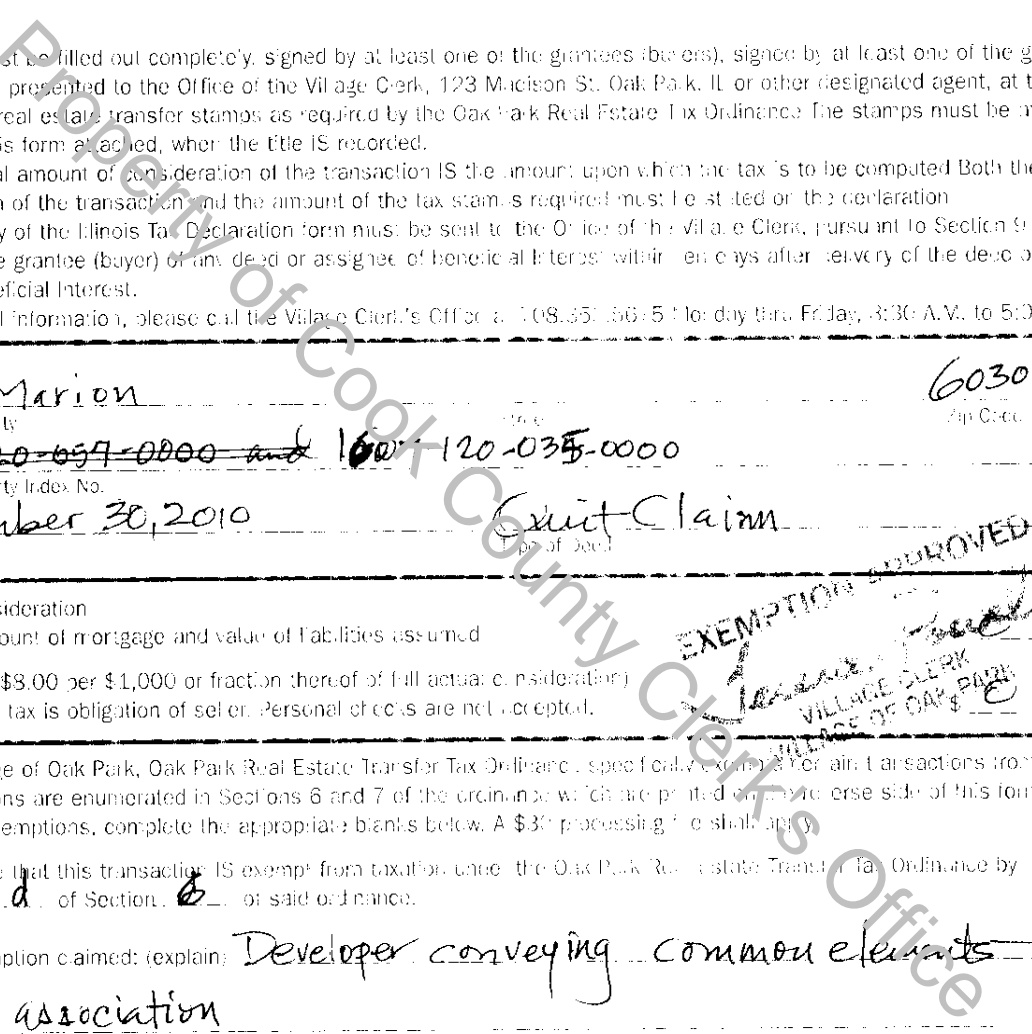 filled out completely, signed by at least one of the grantees (buyers), signed by at least one of the g
presented to the Office of the Village Clerk, 123 Madison St. Oak Park, IL or other designated agent, at t
real estate transfer stamps as required by the Oak Park Real Estate Tax Ordinance The stamps must be
is form attached, when the title IS recorded.
al amount of consideration of the transaction IS the amount upon which the tax is to be computed Both the
n of the transaction and the amount of the tax stamps required must be stated on the declaration
y of the Illinois Tax Declaration form must be sent to the Office of the Village Clerk, pursuant to Section 9
e grantee (buyer) of any deed or assignee of beneficial Interest within ten days after delivery of the deed o
eficial Interest.
l information, please call the Village Clerk's Office at Monday thru Friday, 8:30 A.M. to 5:0
Marion 6030
ty Street Zip Code
0-057-0000 and 120-035-0000
ty Index No.
mber 30, 2010 Quit Claim
Type of Deed
sideration
ount of mortgage and value of liabilities assumed
EXEMPTION APPROVED
$8.00 per $1,000 or fraction thereof of full actual consideration)
tax is obligation of seller. Personal checks are not accepted.
VILLAGE CLERK
VILLAGE OF OAK PARK
$
e of Oak Park, Oak Park Real Estate Transfer Tax Ordinance, specifically exempts certain transactions from
ons are enumerated in Sections 6 and 7 of the ordinance which are printed on the reverse side of this form
emptions, complete the appropriate blanks below. A processing fee shall apply
e that this transaction IS exempt from taxation under the Oak Park Real Estate Transfer Tax Ordinance by
d of Section of said ordinance.
ption claimed: (explain) Developer conveying common elements
association
Property of Cook County Clerk's Office